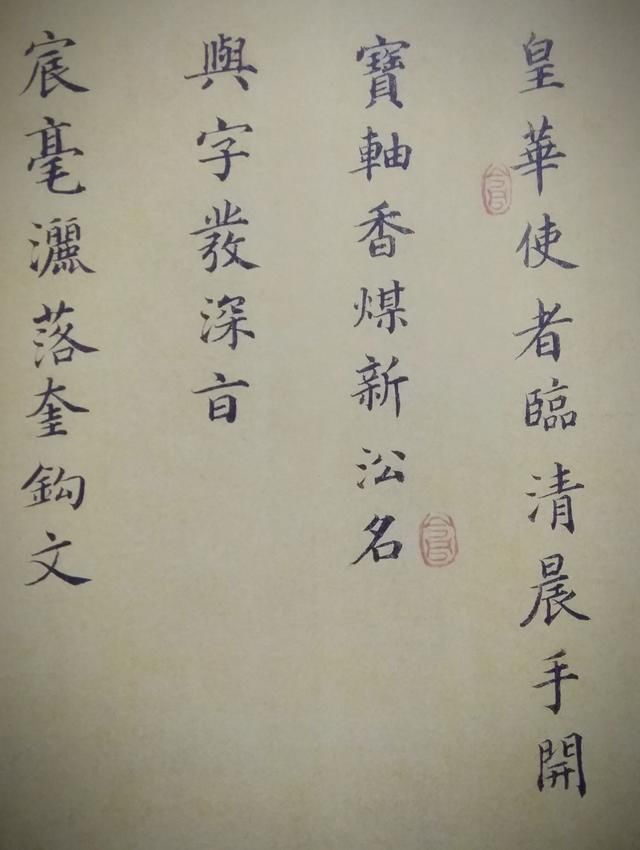 皇華使者臨清晨手開
寶軸香煤新㳂名
與字發深㫖
宸毫灑落奎鈎文